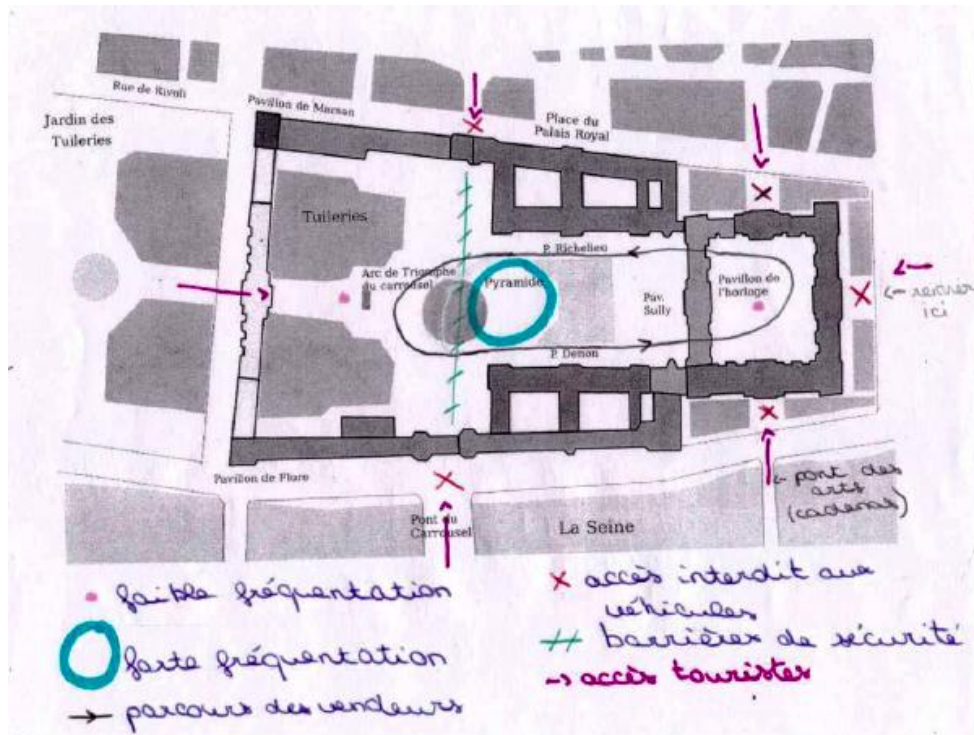 Rue de Rivoli
Pavillon de Marsan
Jardin des
Tuileries
Place du
Palais Royal
Tuileries
P. Richelieu
Arc de Triomphe
du carrousel
Pyramide
Pavillon de
l'horloge
Pav.
Sully
← rentrer
ici
P. Denon
Pavillon de Flore
Pont du
Carrousel
La Seine
← pont des
arts
(cadenas)
faible fréquentation
forte fréquentation
→ parcours des vendeurs
× accès interdit aux
véhicules
barrières de sécurité
→ accès touristes